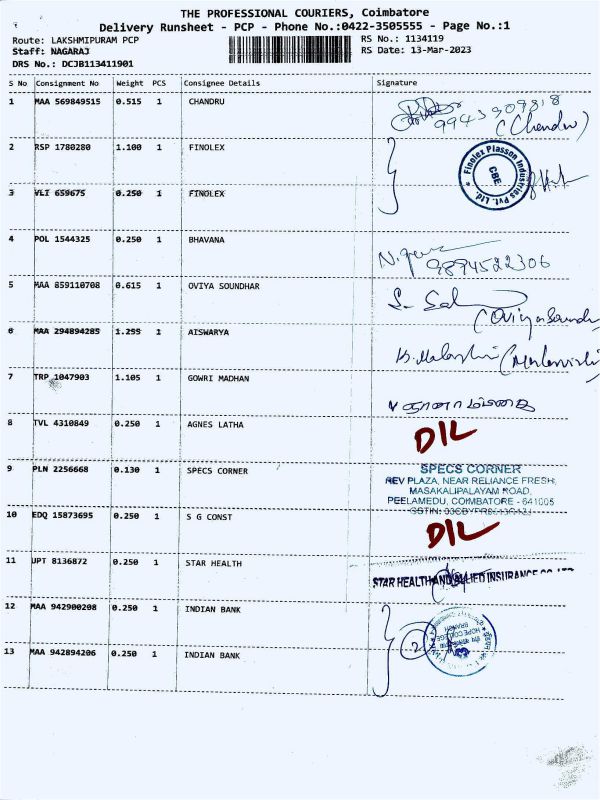 THE PROFESSIONAL COURIERS, Coimbatore
Delivery Runsheet - PCP - Phone No.:0422-3505555 - Page No.:1
Route: LAKSHMIPURAM PCP RS No.: 1134119
Staff: NAGARAJ RS Date: 13-Mar-2023
DRS No.: DCJB113411901
S No Consignment No Weight PCS Consignee Details Signature
1 MAA 569849515 0.515 1 CHANDRU 9943909818
(Chandru)
2 RSP 1780280 1.100 1 FINOLEX Finolex Plasson Industries Pvt. Ltd. CBE
3 VLI 659675 0.250 1 FINOLEX
4 POL 1544325 0.250 1 BHAVANA 9894522306
5 MAA 859110708 0.615 1 OVIYA SOUNDHAR
6 MAA 294894285 1.255 1 AISWARYA
7 TRP 1047903 1.105 1 GOWRI MADHAN
8 TVL 4310849 0.250 1 AGNES LATHA DIL
9 PLN 2256668 0.130 1 SPECS CORNER SPECS CORNER
REV PLAZA, NEAR RELIANCE FRESH,
MASAKALIPALAYAM ROAD,
PEELAMEDU, COIMBATORE - 641005
10 EDQ 15873695 0.250 1 S G CONST DIL
11 UPT 8136872 0.250 1 STAR HEALTH STAR HEALTH AND ALLIED INSURANCE CO LTD
12 MAA 942900208 0.250 1 INDIAN BANK 2 HOPE COLLEGE BRANCH
13 MAA 942894206 0.250 1 INDIAN BANK